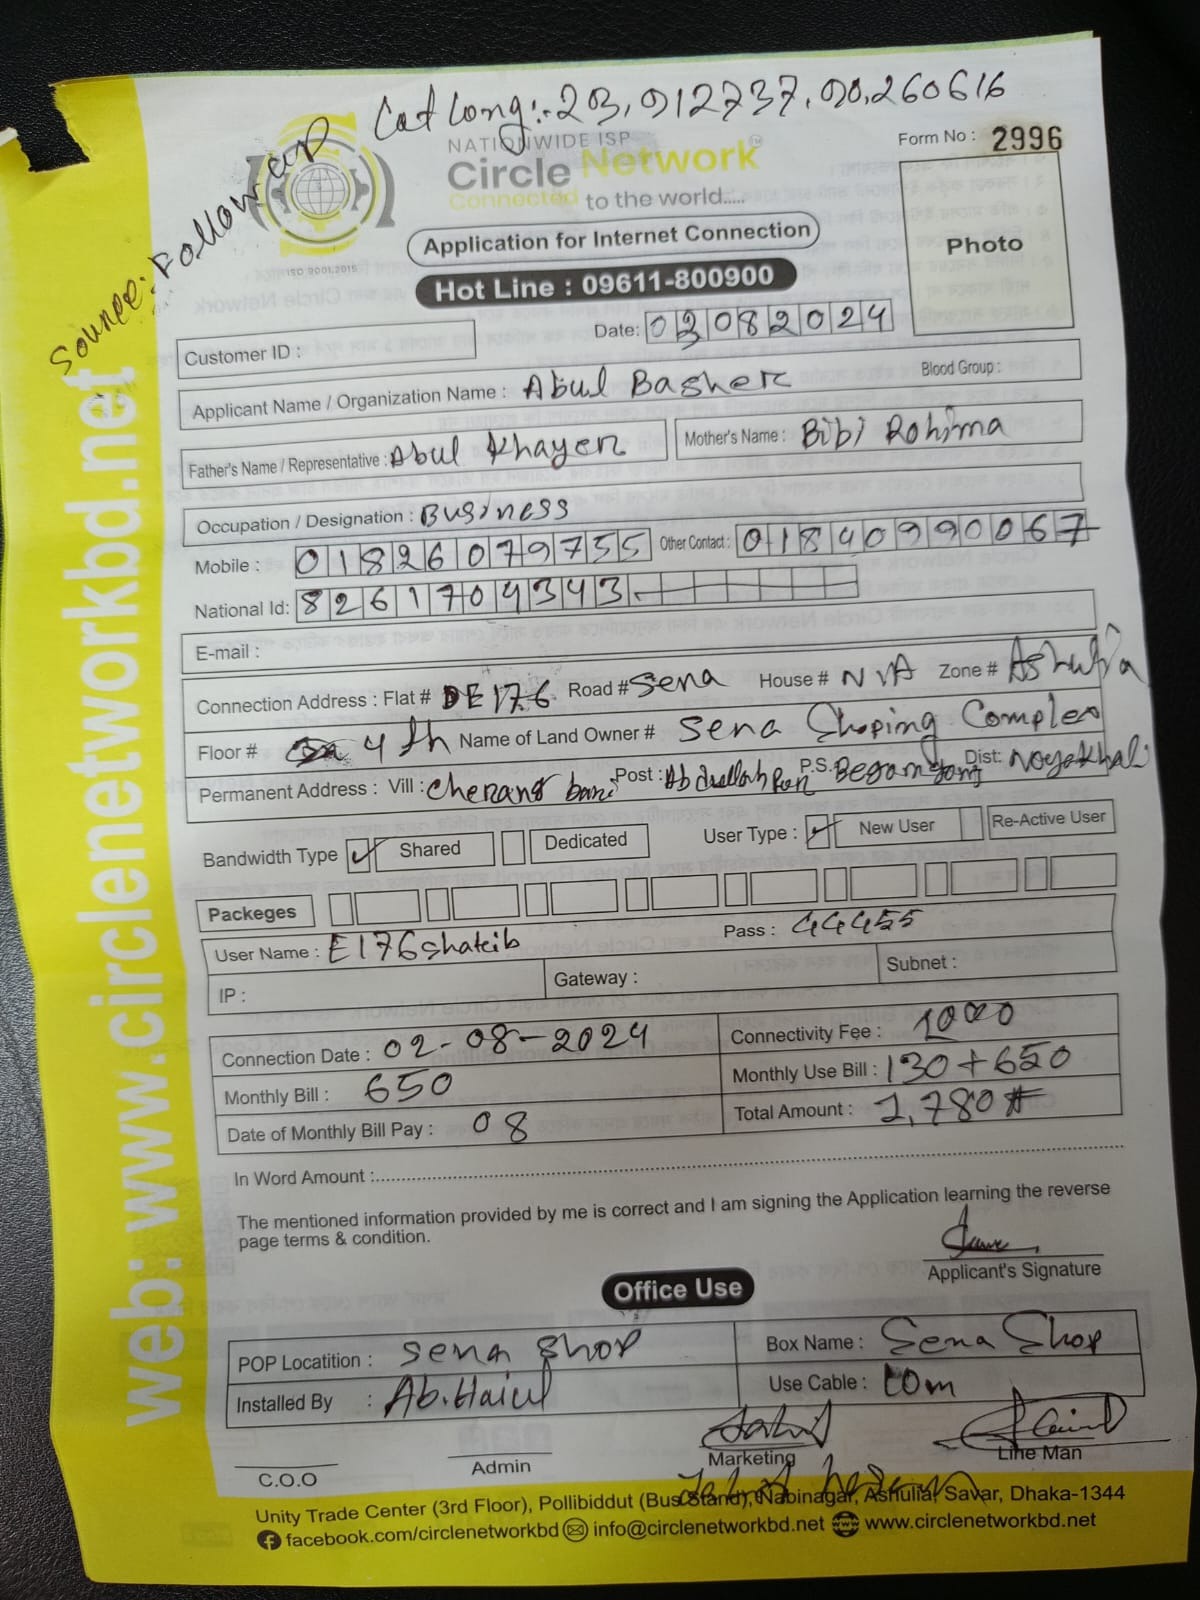 Cat Long:- 23.912737, 90.260616
Source: Follow up
NATIONWIDE ISP
Circle Network
Connected to the world.....
ISO 9001:2015
Form No : 2996
Photo
Application for Internet Connection
Hot Line : 09611-800900
Date: 03082024
Customer ID :
Applicant Name / Organization Name : Abul Basher Blood Group :
Father's Name / Representative : Abul Khayer Mother's Name : Bibi Rohima
Occupation / Designation : Business
Mobile : 01826079755 Other Contact : 01840990067
National Id: 8261704343
E-mail :
Connection Address : Flat # E176 Road # Sena House # N/A Zone # Ashulia
Floor # 4th Name of Land Owner # Sena Shoping Complex
Permanent Address : Vill : Cherang bari Post : Abdullah P.S. Begamgong Dist: Noyakhali
Bandwidth Type Shared Dedicated User Type : New User Re-Active User
Packeges
User Name : E176shakib Pass : 44455
IP : Gateway : Subnet :
Connection Date : 02-08-2024 Connectivity Fee : 1000
Monthly Bill : 650 Monthly Use Bill : 130+650
Date of Monthly Bill Pay : 08 Total Amount : 1,780
In Word Amount :
The mentioned information provided by me is correct and I am signing the Application learning the reverse
page terms & condition.
Applicant's Signature
Office Use
POP Locatition : Sena Shop Box Name : Sena Shop
Installed By : Ab. Haiul Use Cable : 10m
C.O.O Admin Marketing Line Man
Unity Trade Center (3rd Floor), Pollibiddut (Bus Stand), Nabinagar, Ashulia, Savar, Dhaka-1344
facebook.com/circlenetworkbd info@circlenetworkbd.net www.circlenetworkbd.net
web: www.circlenetworkbd.net